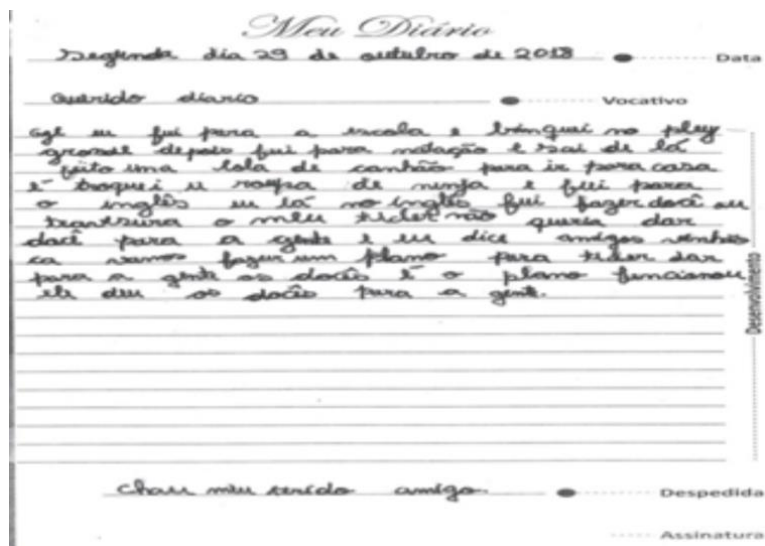 Meu Diário
Segunda dia 29 de outubro de 2018
Data
Querido diario
Vocativo
oge eu fui para a escola e brinquei no pley
gronde depois fui para natação e sai de lá
feito uma bola de canhão para ir para casa
é troquei u roupa de ninja e fui para
o inglês eu lá no inglês fui fazer doci ou
o meu não queria dar
doci para a gente e eu dice amigos venhão
ca vamos fazer um plano para ticher dar
para a gente os docês é o plano funcionou
ele deu os docês para a gente.
Desenvolvimento
chau meu amigo.
Despedida
Assinatura